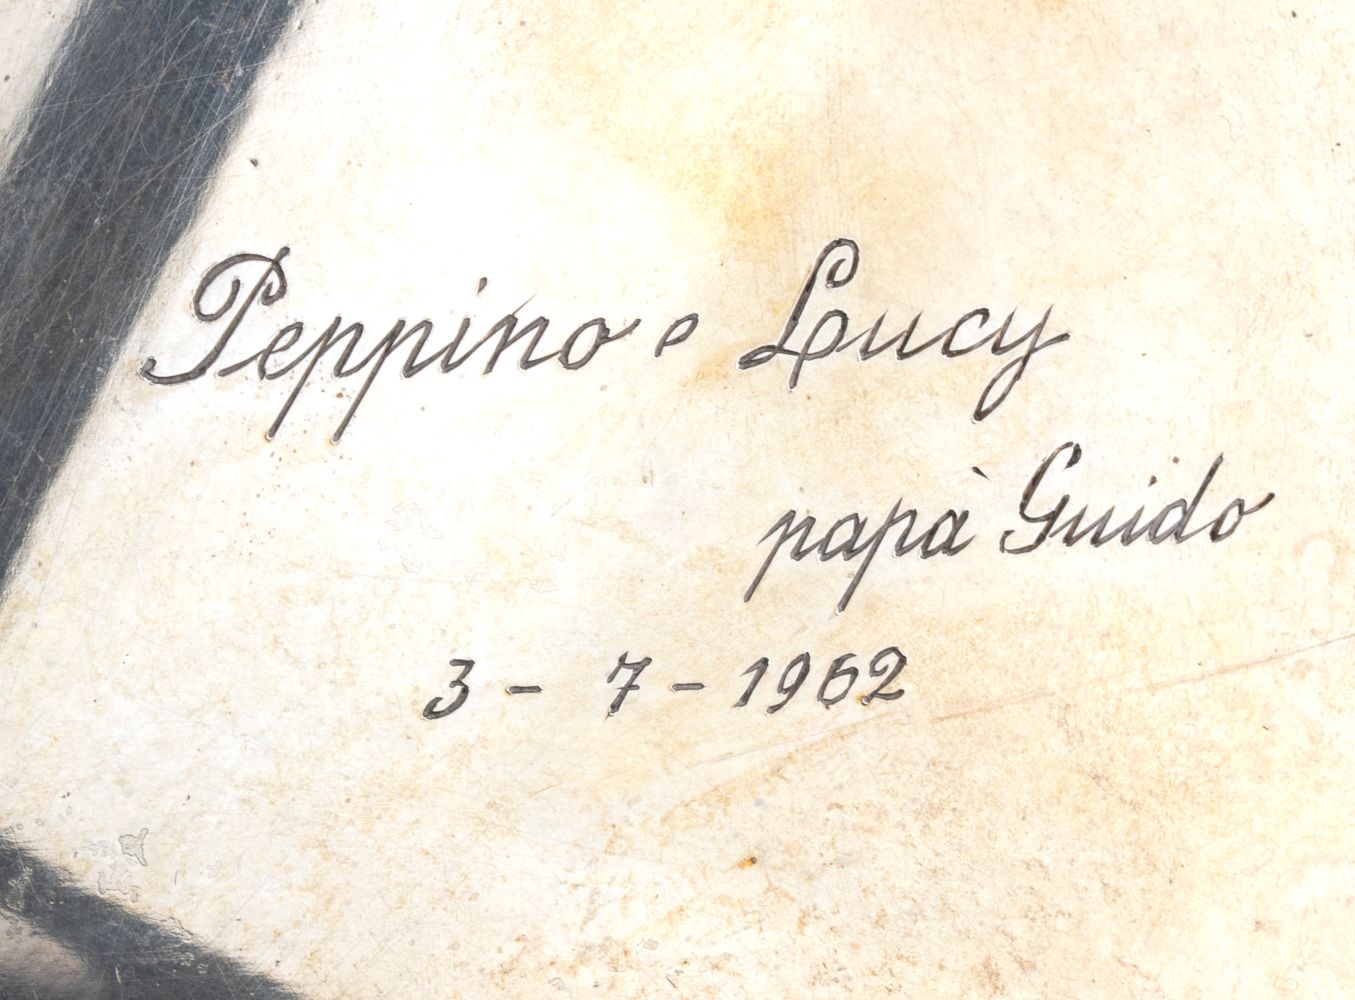 Peppino e Lucy
papà Guido
3 - 7 - 1962